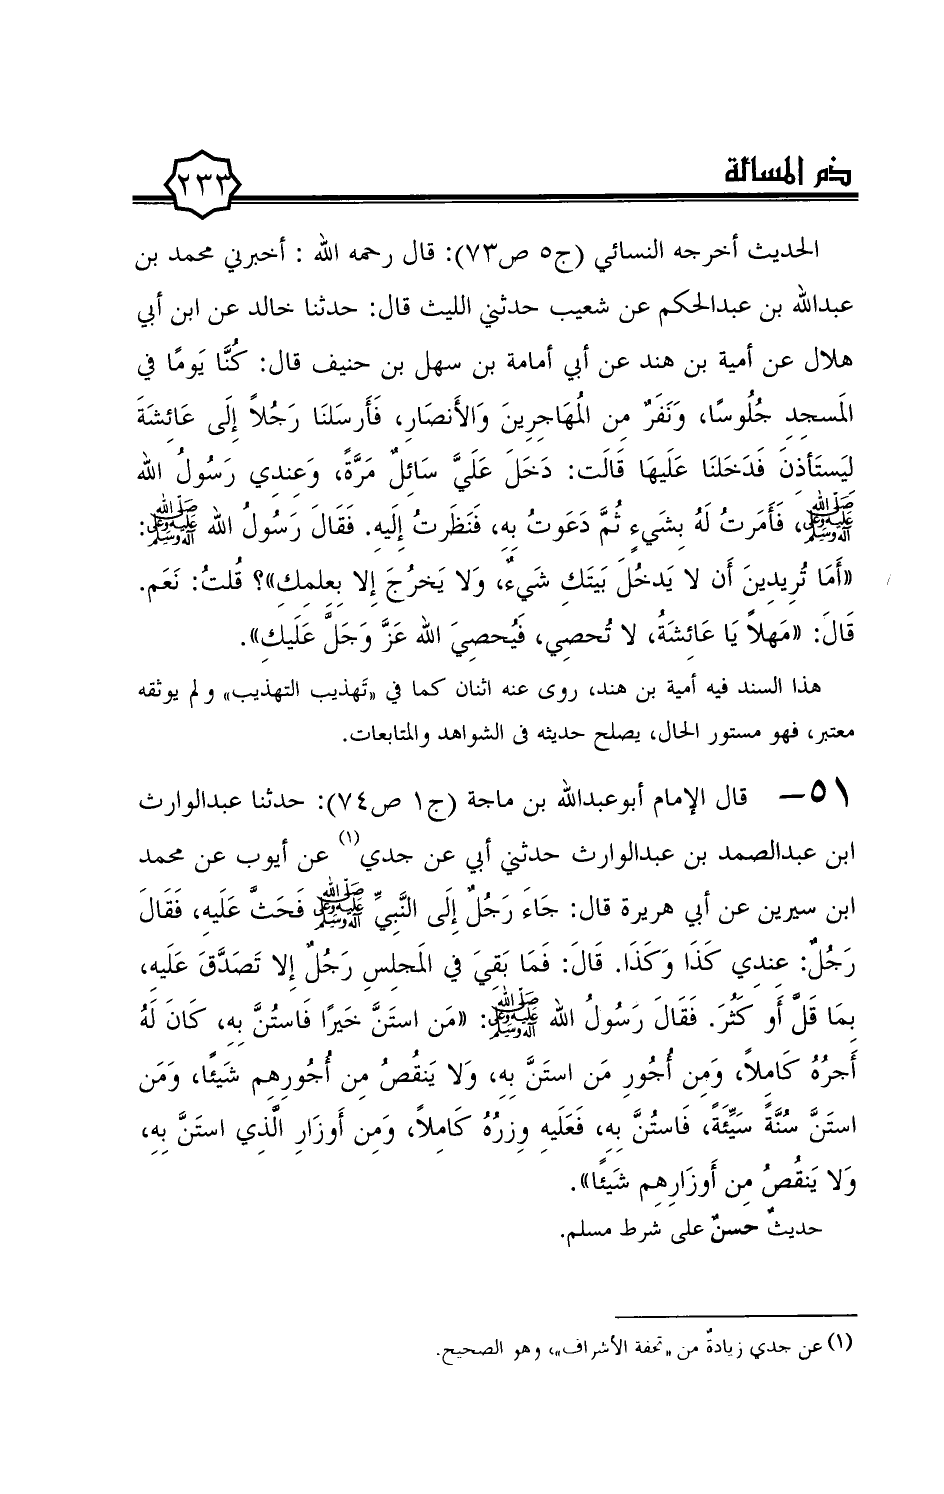 ذم المسألة
٢٣٣
الحديث أخرجه النسائي (ج٥ ص٧٣): قال رحمه الله : أخبرني محمد بن
عبدالله بن عبدالحكم عن شعيب حدثني الليث قال: حدثنا خالد عن ابن أبي
هلال عن أمية بن هند عن أبي أمامة بن سهل بن حنيف قال: كُنَّا يَومًا في
المَسجدِ جُلُوسًا، وَنَفَرٌ من المُهَاجِرِينَ وَالأَنصَارِ، فَأَرسَلنَا رَجُلاً إِلَى عَائشَةَ
ليَستَأذنَ فَدَخَلنَا عَلَيهَا قَالَت: دَخَلَ عَلَيَّ سَائلٌ مَرَّةً، وَعندِي رَسُولُ الله
ﷺ، فَأَمَرتُ لَهُ بشَيءٍ ثُمَّ دَعَوتُ بِهِ، فَنَظَرتُ إلَيهِ. فَقَالَ رَسُولُ الله ﷺ:
«أَمَا تُرِيدِينَ أَن لا يَدخُلَ بَيتَكِ شَيءٌ، وَلا يَخرُجَ إلا بعِلمك»؟ قُلتُ: نَعَم.
قَالَ: «مَهلاً يَا عَائشَةُ، لا تُحصِي، فَيُحصِيَ الله عَزَّ وَجَلَّ عَلَيك».
هذا السند فيه أمية بن هند، روى عنه اثنان كما في «تَهذيب التهذيب» ولم يوثقه
معتبر، فهو مستور الحال، يصلح حديثه في الشواهد والمتابعات.
٥١- قال الإمام أبوعبدالله بن ماجة (ج١ ص٧٤): حدثنا عبدالوارث
ابن عبدالصمد بن عبدالوارث حدثني أبي عن جدي(١) عن أيوب عن محمد
ابن سيرين عن أبي هريرة قال: جَاءَ رَجُلٌ إلَى النَّبِيِّ ﷺ فَحَثَّ عَلَيه، فَقَالَ
رَجُلٌ: عِندِي كَذَا وَكَذَا. قَالَ: فَمَا بَقِيَ في المَجلس رَجُلٌ إلا تَصَدَّقَ عَلَيهِ،
بِمَا قَلَّ أَو كَثُرَ. فَقَالَ رَسُولُ الله ﷺ: «مَن استَنَّ خَيرًا فَاستُنَّ بِهِ، كَانَ لَهُ
أَجرُهُ كَاملاً، وَمِن أُجُورِ مَن استَنَّ بِهِ، وَلا يَنقُصُ مِن أُجُورِهِم شَيئًا، وَمَن
استَنَّ سُنَّةً سَيِّئَةً، فَاستُنَّ بِهِ، فَعَلَيهِ وِزرُهُ كَاملاً، وَمِن أَوزَارِ الَّذي استَنَّ بِهِ،
وَلا يَنقُصُ مِن أَوزَارِهِم شَيئًا».
حديثٌ حسنٌ على شرط مسلم.
(١) عن جدي زيادةٌ من «تحفة الأشراف»، وهو الصحيح.